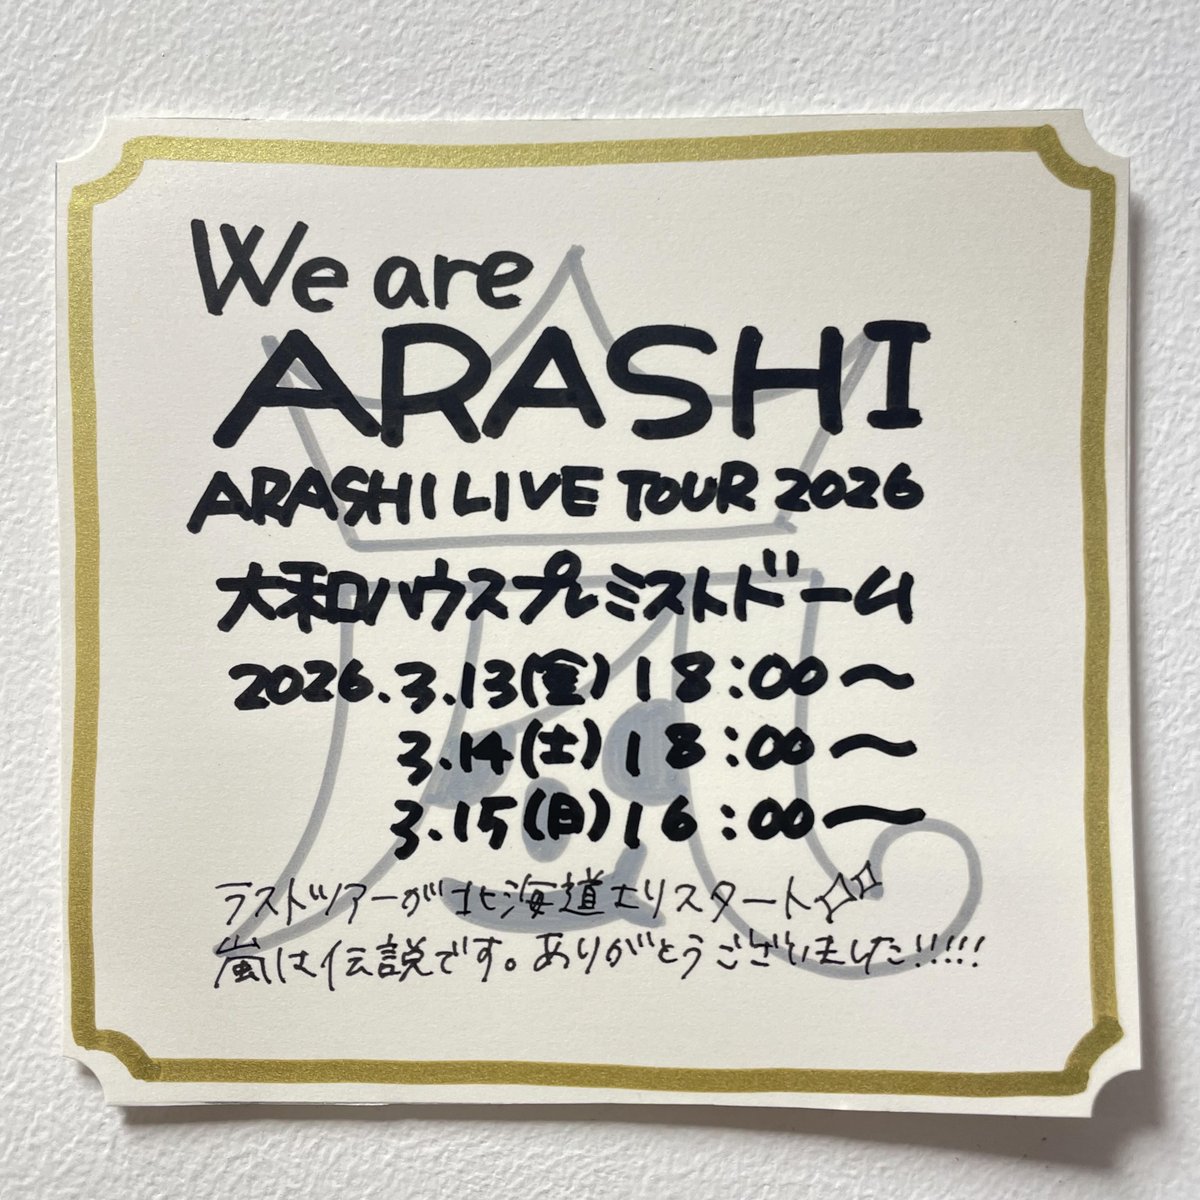 We are
ARASHI
ARASHI LIVE TOUR 2026
大和ハウスプレミストドーム
2026.3.13(金)18:00〜
3.14(土)18:00〜
3.15(日)16:00〜
ラストツアーが北海道よりスタート
嵐は伝説です。ありがとうございました!!!!!